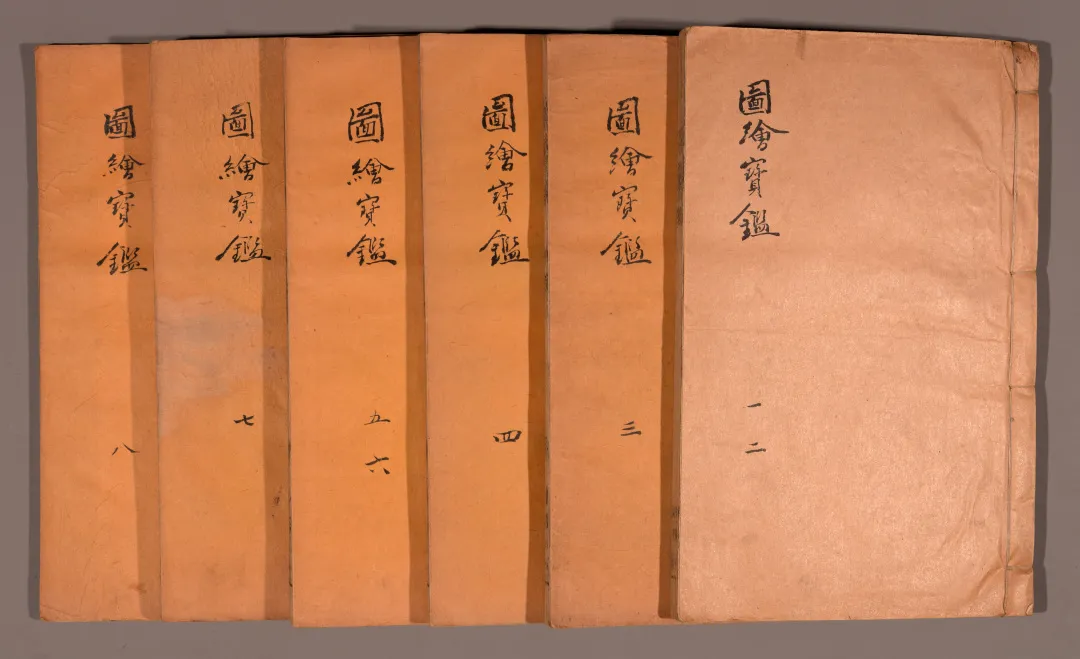 圖繪寶鑑
一
二
圖繪寶鑑
三
圖繪寶鑑
四
圖繪寶鑑
五
六
圖繪寶鑑
七
圖繪寶鑑
八